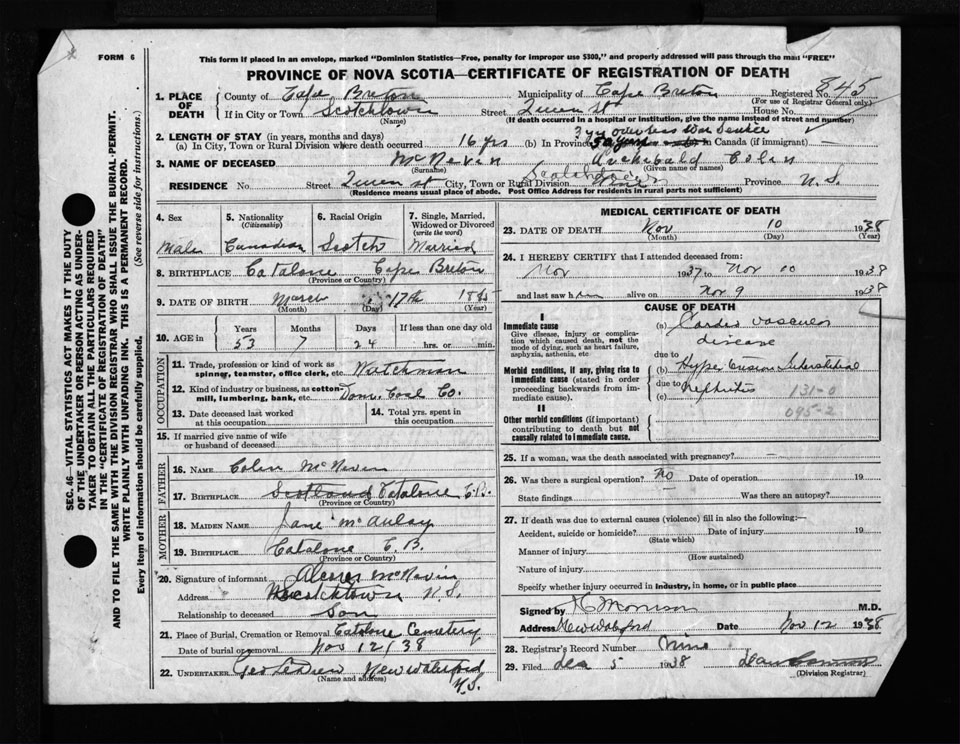 FORM 6
This form if placed in an envelope, marked "Dominion Statistics—Free, penalty for improper use $300," and properly addressed will pass through the mail "FREE"
PROVINCE OF NOVA SCOTIA—CERTIFICATE OF REGISTRATION OF DEATH
1. PLACE OF DEATH
County of Cape Breton Municipality of Cape Breton Registered No. 845
(For use of Registrar General only)
If in City or Town Scotchtown Street Queen St House No.
(Name) (If death occurred in a hospital or institution, give the name instead of street and number)
2. LENGTH OF STAY (in years, months and days) 3 yrs overseas War Service
(a) In City, Town or Rural Division where death occurred 16 yrs (b) In Province (c) in Canada (if immigrant) —
3. NAME OF DECEASED McNevin Archibald Colin
(Surname) (Given name or names)
RESIDENCE No. Street Queen st City, Town or Rural Division Province N.S.
(Residence means usual place of abode. Post Office Address for residents in rural parts not sufficient)
4. Sex
Male
5. Nationality
(Citizenship)
Canadian
6. Racial Origin
Scotch
7. Single, Married, Widowed or Divorced
(write the word)
Married
8. BIRTHPLACE Catalone Cape Breton
(Province or Country)
9. DATE OF BIRTH March 17th 1885
(Month) (Day) (Year)
10. AGE in Years Months Days If less than one day old
53 7 24 hrs. or min.
11. Trade, profession or kind of work as spinner, teamster, office clerk, etc. Watchman
12. Kind of industry or business, as cotton-mill, lumbering, bank, etc. Dom. Coal Co.
13. Date deceased last worked at this occupation
14. Total yrs. spent in this occupation
15. If married give name of wife or husband of deceased
FATHER
16. NAME Colin McNevin
17. BIRTHPLACE Scotland Catalone C.B.
(Province or Country)
MOTHER
18. MAIDEN NAME Jane McAulay
19. BIRTHPLACE Catalone C.B.
(Province or Country)
20. Signature of informant McNevin
Address Scotchtown N.S.
Relationship to deceased Son
21. Place of Burial, Cremation or Removal Catalone Cemetery
Date of burial or removal Nov 12/38
22. UNDERTAKER Geo LeDrew New Waterford N.S.
(Name and address)
MEDICAL CERTIFICATE OF DEATH
23. DATE OF DEATH Nov 10 1938
(Month) (Day)
24. I HEREBY CERTIFY that I attended deceased from:
Nov 1937 to Nov 10 1938
and last saw him alive on Nov 9 1938
CAUSE OF DEATH
I
Immediate cause
Give disease, injury or complication which caused death, not the mode of dying, such as heart failure, asphyxia, asthenia, etc
Morbid conditions, if any, giving rise to immediate cause (stated in order proceeding backwards from immediate cause).
II
Other morbid conditions (if important) contributing to death but not causally related to immediate cause.
(a) Cardio vascular
disease
due to
(b) Hypertension Interstitial
due to
(c) Nephritis
131-0
095-2
25. If a woman, was the death associated with pregnancy? —
26. Was there a surgical operation? No Date of operation 19
State findings Was there an autopsy?
27. If death was due to external causes (violence) fill in also the following:—
Accident, suicide or homicide? Date of injury 19
(State which)
Manner of injury
(How sustained)
Nature of injury
Specify whether injury occurred in industry, in home, or in public place
Signed by Morrison M.D.
Address New Waterford Date Nov 12 1938
28. Registrar's Record Number Nine
29. Filed Dec 5 1938
(Division Registrar)
SEC. 46—VITAL STATISTICS ACT MAKES IT THE DUTY
OF THE UNDERTAKER OR PERSON ACTING AS UNDER-
TAKER TO OBTAIN ALL THE PARTICULARS REQUIRED
IN THE "CERTIFICATE OF REGISTRATION OF DEATH"
AND TO FILE THE SAME WITH THE DIVISION REGISTRAR WHO SHALL ISSUE THE BURIAL-PERMIT.
WRITE PLAINLY WITH UNFADING INK. THIS IS A PERMANENT RECORD.
Every item of information should be carefully supplied. (See reverse side for instructions.)